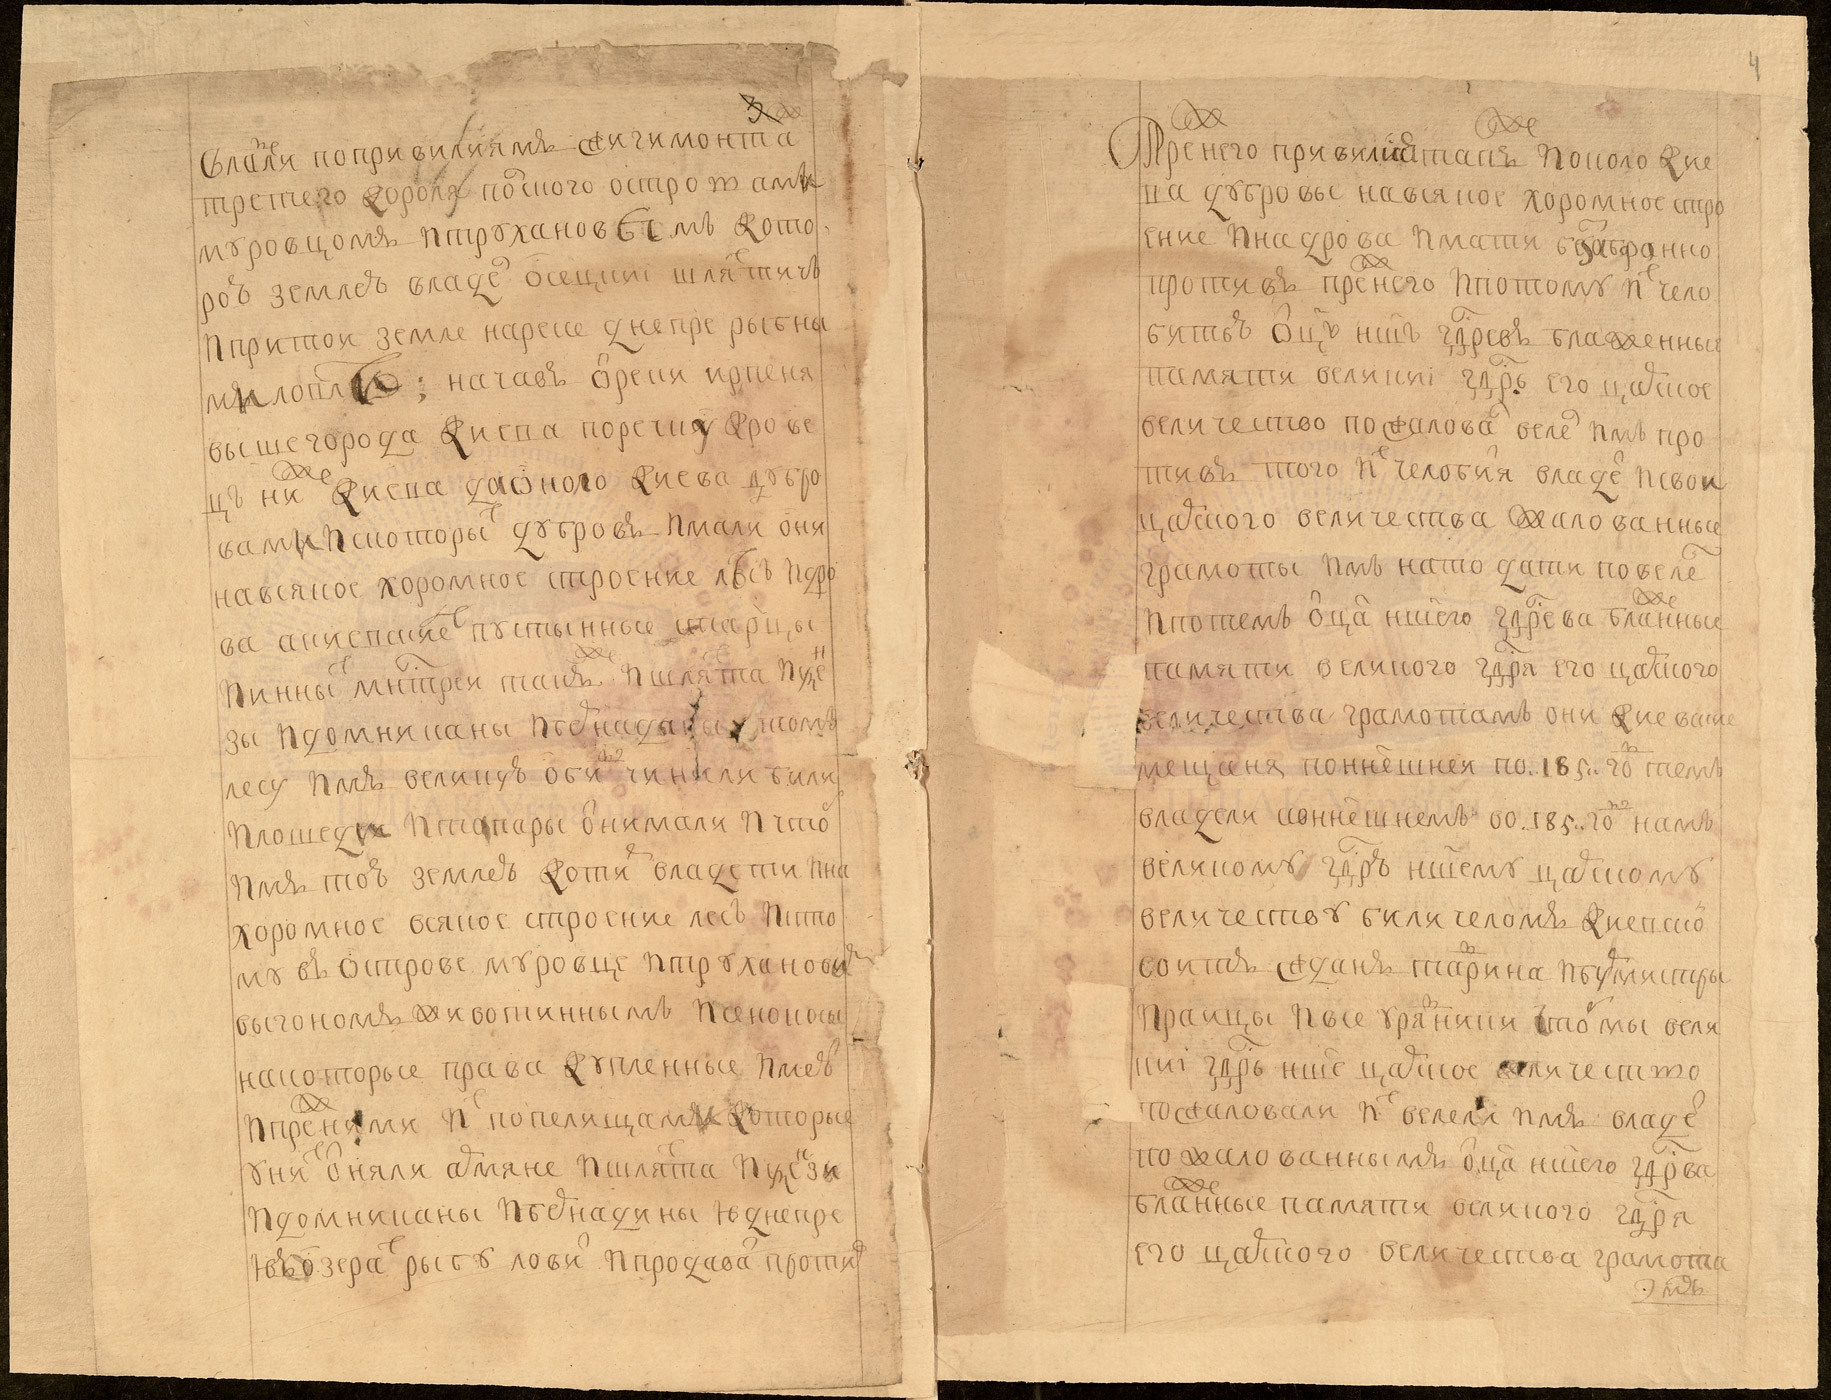 3
владѣли по привилиямъ Жигимонта
третего короля полского островами
муровцомъ и трухановымъ кото
роѣ землеѣ владѣл осецкиі шляхтичь
и при тои земле на реке днепре рыбны
ми ловли начавъ от реки ирпеня
выше города Киева поречкү кро ве
ниже Киева даного Киева дубро
вами и с которых дубровъ имали они
на всякое хоромное строение лѣсъ и дро
ва а киепские пустынные старцы
и иных мнтреи також и шляхта и ксен
зы и домниканы и бернадыны в томъ
лесу имъ великую обиду чинили били
и лошеди и топары отнимали и чтоб
имъ тоѣ землеѣ и владети и на
хоромное всякое строение лесъ и по то
му въ острове муровце и труханове
выгономъ животиннымъ и сенокосы
на которые права купленные имеѣ
и прежними их попелищами которые
у них отняли армяне и шляхта и ксензи
и домниканы и бернадины и в днепре
и въ озерах рыбу ловит и продават против
4
Прежнего привилия також и около Кие
ва дубровы на всякое хоромное стро
ение и на дрова имати безоборонно
противъ прежнего и потому их чело
битью отцъ ншъ гдревъ блаженные
памяти великиі гдрь его царское
величество пожаловал велел имъ про
тивъ того их челобитя владет и свои
царского величества жалованные
грамоты имъ на то дати повелел
и по темъ отца ншего гдрева блаженные
памяти великого гдря его царского
величества грамотамъ они Киевские
мещаня по ннешнеи по .185. год темъ
владели а в ннешнемъ во .185. году намъ
великому гдрю ншему царскому
величеству били челомъ Киевской
воитъ Жданъ тарина и бурмистры
и раицы и все урядники чтоб мы вели
киі гдрь нше царское величество
пожаловали их велели имъ владет
по жалованнымъ отца ншего гдрва
блаженные памяти великого гдря
его царского величества грамота
мъ